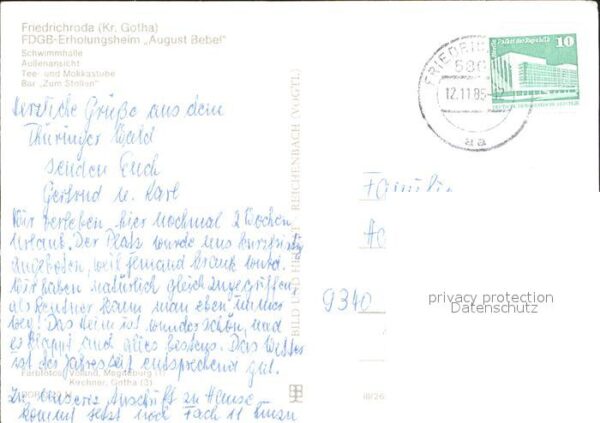 Friedrichroda (Kr. Gotha)
FDGB-Erholungsheim „August Bebel"
Schwimmhalle
Außenansicht
Tee- und Mokkastube
Bar „Zum Stollen"
Herzliche Grüße aus dem
Thüringer Wald
senden Euch
Gertrud u. Karl
Wir verleben hier nochmal 2 Wochen
Urlaub. Der Platz wurde uns kurzfristig
angeboten, weil jemand krank wurde.
Wir haben natürlich gleich zugegriffen,
als Rentner kann man eben immer
weg! Das Heim ist wunderschön, und
es klappt auch alles bestens. Das Wetter
ist der Jahreszeit entsprechend gut.
Farbfotos: Volland, Magdeburg (1)
Kirchner, Gotha (3)
Zu unserer Anschrift zu Hause
kommt jetzt noch Fach 11
BILD UND HEIMAT REICHENBACH (VOGTL)
FRIEDRICH
580
12.11.85
aa
10
Familie
9340
privacy protection
Datenschutz